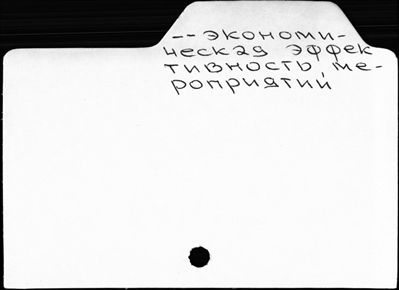 --экономи-
ческая эффек
тивность ме-
роприятий